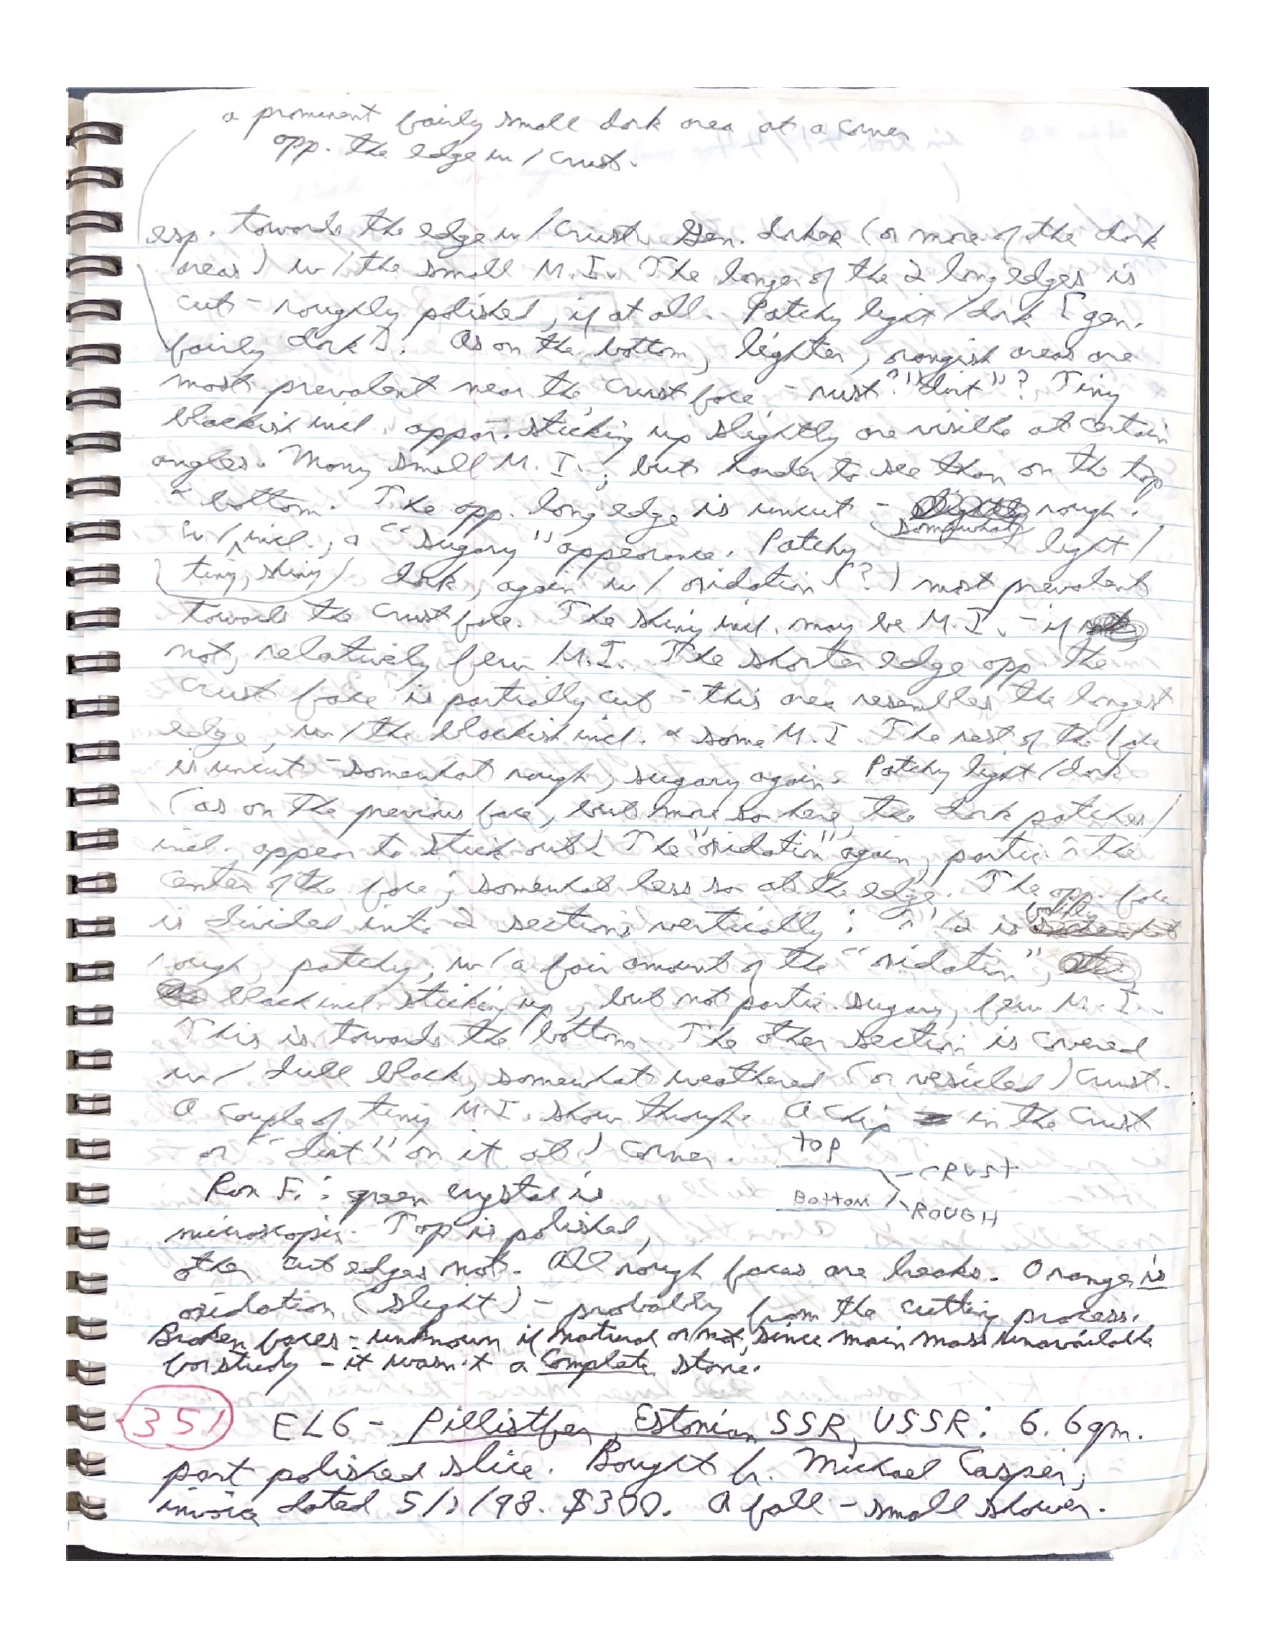 a prominent fairly small dark area at a corner
opp. the edge w/ crust.
esp. towards the edge w/ crust. Gen. darker (or more of the dark
areas) w/ the small M.I. The longer of the 2 long edges is
cut - roughly polished, if at all. Patchy light/dark [gen.
fairly dark]. As on the bottom, lighter, orangish areas are
most prevalent near the crust face - rust? "dirt"? Tiny
blackish incl. appar. sticking up slightly are visible at certain
angles. Many small M.I., but harder to see than on the top
+ bottom. The opp. long edge is uncut - somewhat rough.
w/ tiny, shiny incl., a "sugary" appearance. Patchy light/
dark, again w/ oxidation (?) most prevalent
towards the crust face. The shiny incl. may be M.I. - if
not, relatively few M.I. The shorter edge opp. the
crust face is partially cut - this area resembles the longest
edge, w/ the blackish incl. + some M.I. The rest of the face
is uncut - somewhat rough, sugary again. Patchy light/dark
(as on the previous face, but more so here, the dark patches/
incl. appear to stick out). The "oxidation" again, partic. in the
center of the face; somewhat less so at the edge. The opp. face
is divided into 2 sections vertically; 1/2 is
rough, patchy, w/ a fair amount of the "oxidation",
black incl. sticking up, but not partic. sugary, few M.I.
This is towards the bottom. The other section is covered
w/ dull black, somewhat weathered (or vesicled) crust.
A couple of tiny M.I. show through. A chip in the crust
or "dirt" on it at 1 corner.
TOP
CRUST
Bottom
ROUGH
Ron F.: green crystal is
microscopic. Top is polished,
other cut edges not. All rough faces are breaks. Orange is
oxidation (slight) - probably from the cutting process.
Broken faces - unknown if natural or not, since main mass unavailable
for study - it wasn't a complete stone.
351 EL6 - Pillistfer, Estonian SSR, USSR: 6.6gm.
part polished slice. Bought fr. Michael Casper;
invoice dated 5/1/98. $300. A fall - small shower.